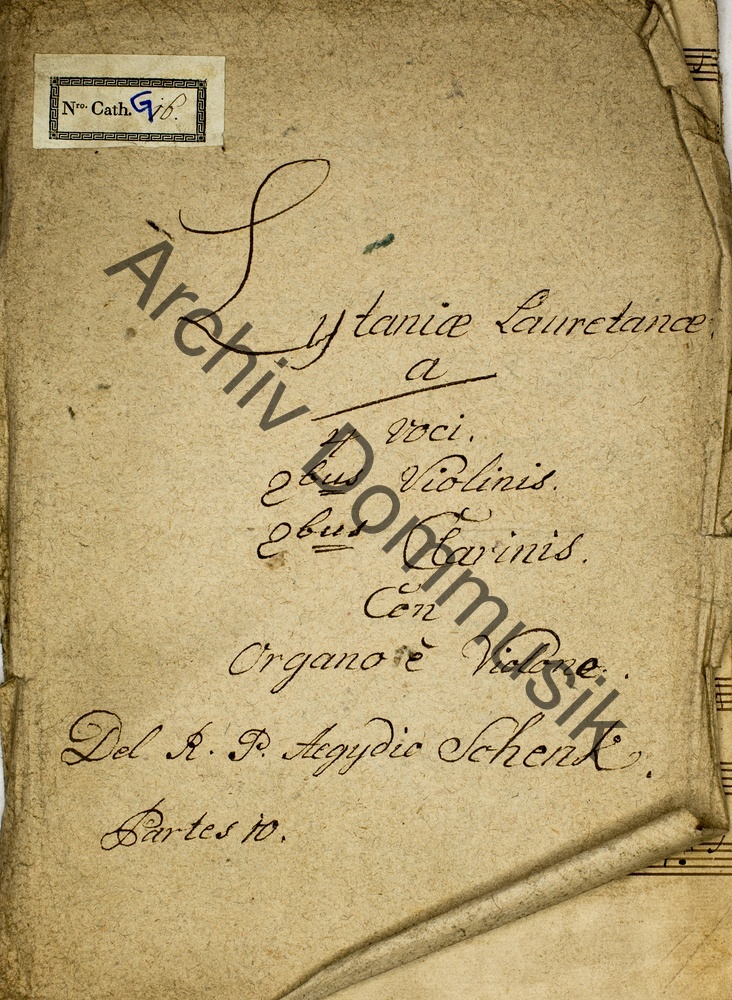 Nro. Cath. G 16.
Lytaniæ Lauretanæ.
a
4 voci.
2bus Violinis.
2bus Clarinis.
Con
Organo è Violone.
Del R. P. Aegydio Schenk.
Partes 10.
Archiv Dommusik